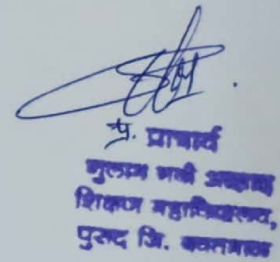 प्र. प्राचार्य
गुलाम नबी आझाद
शिक्षण महाविद्यालय,
पुसद जि. यवतमाळ